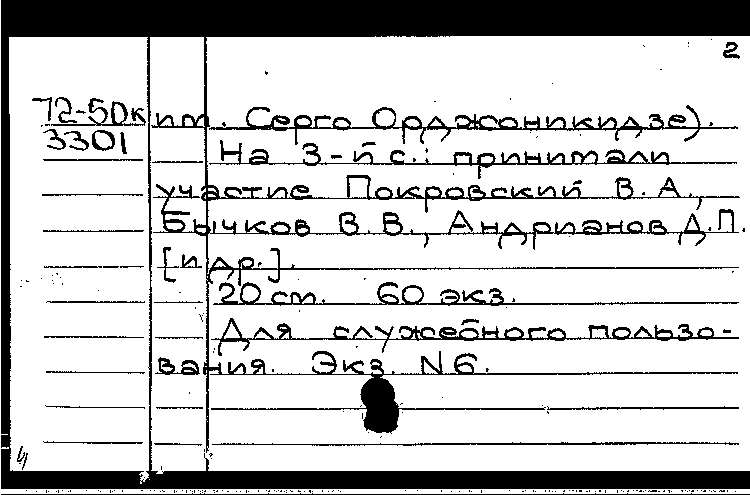 2
72-50к им. Серго Орджоникидзе).
3301 На 3-й с.: принимали
участие Покровский В.А.,
Бычков В.В., Андрианов Д.П.
[и др.].
20 см. 60 экз.
Для служебного пользо-
вания. Экз. N6.